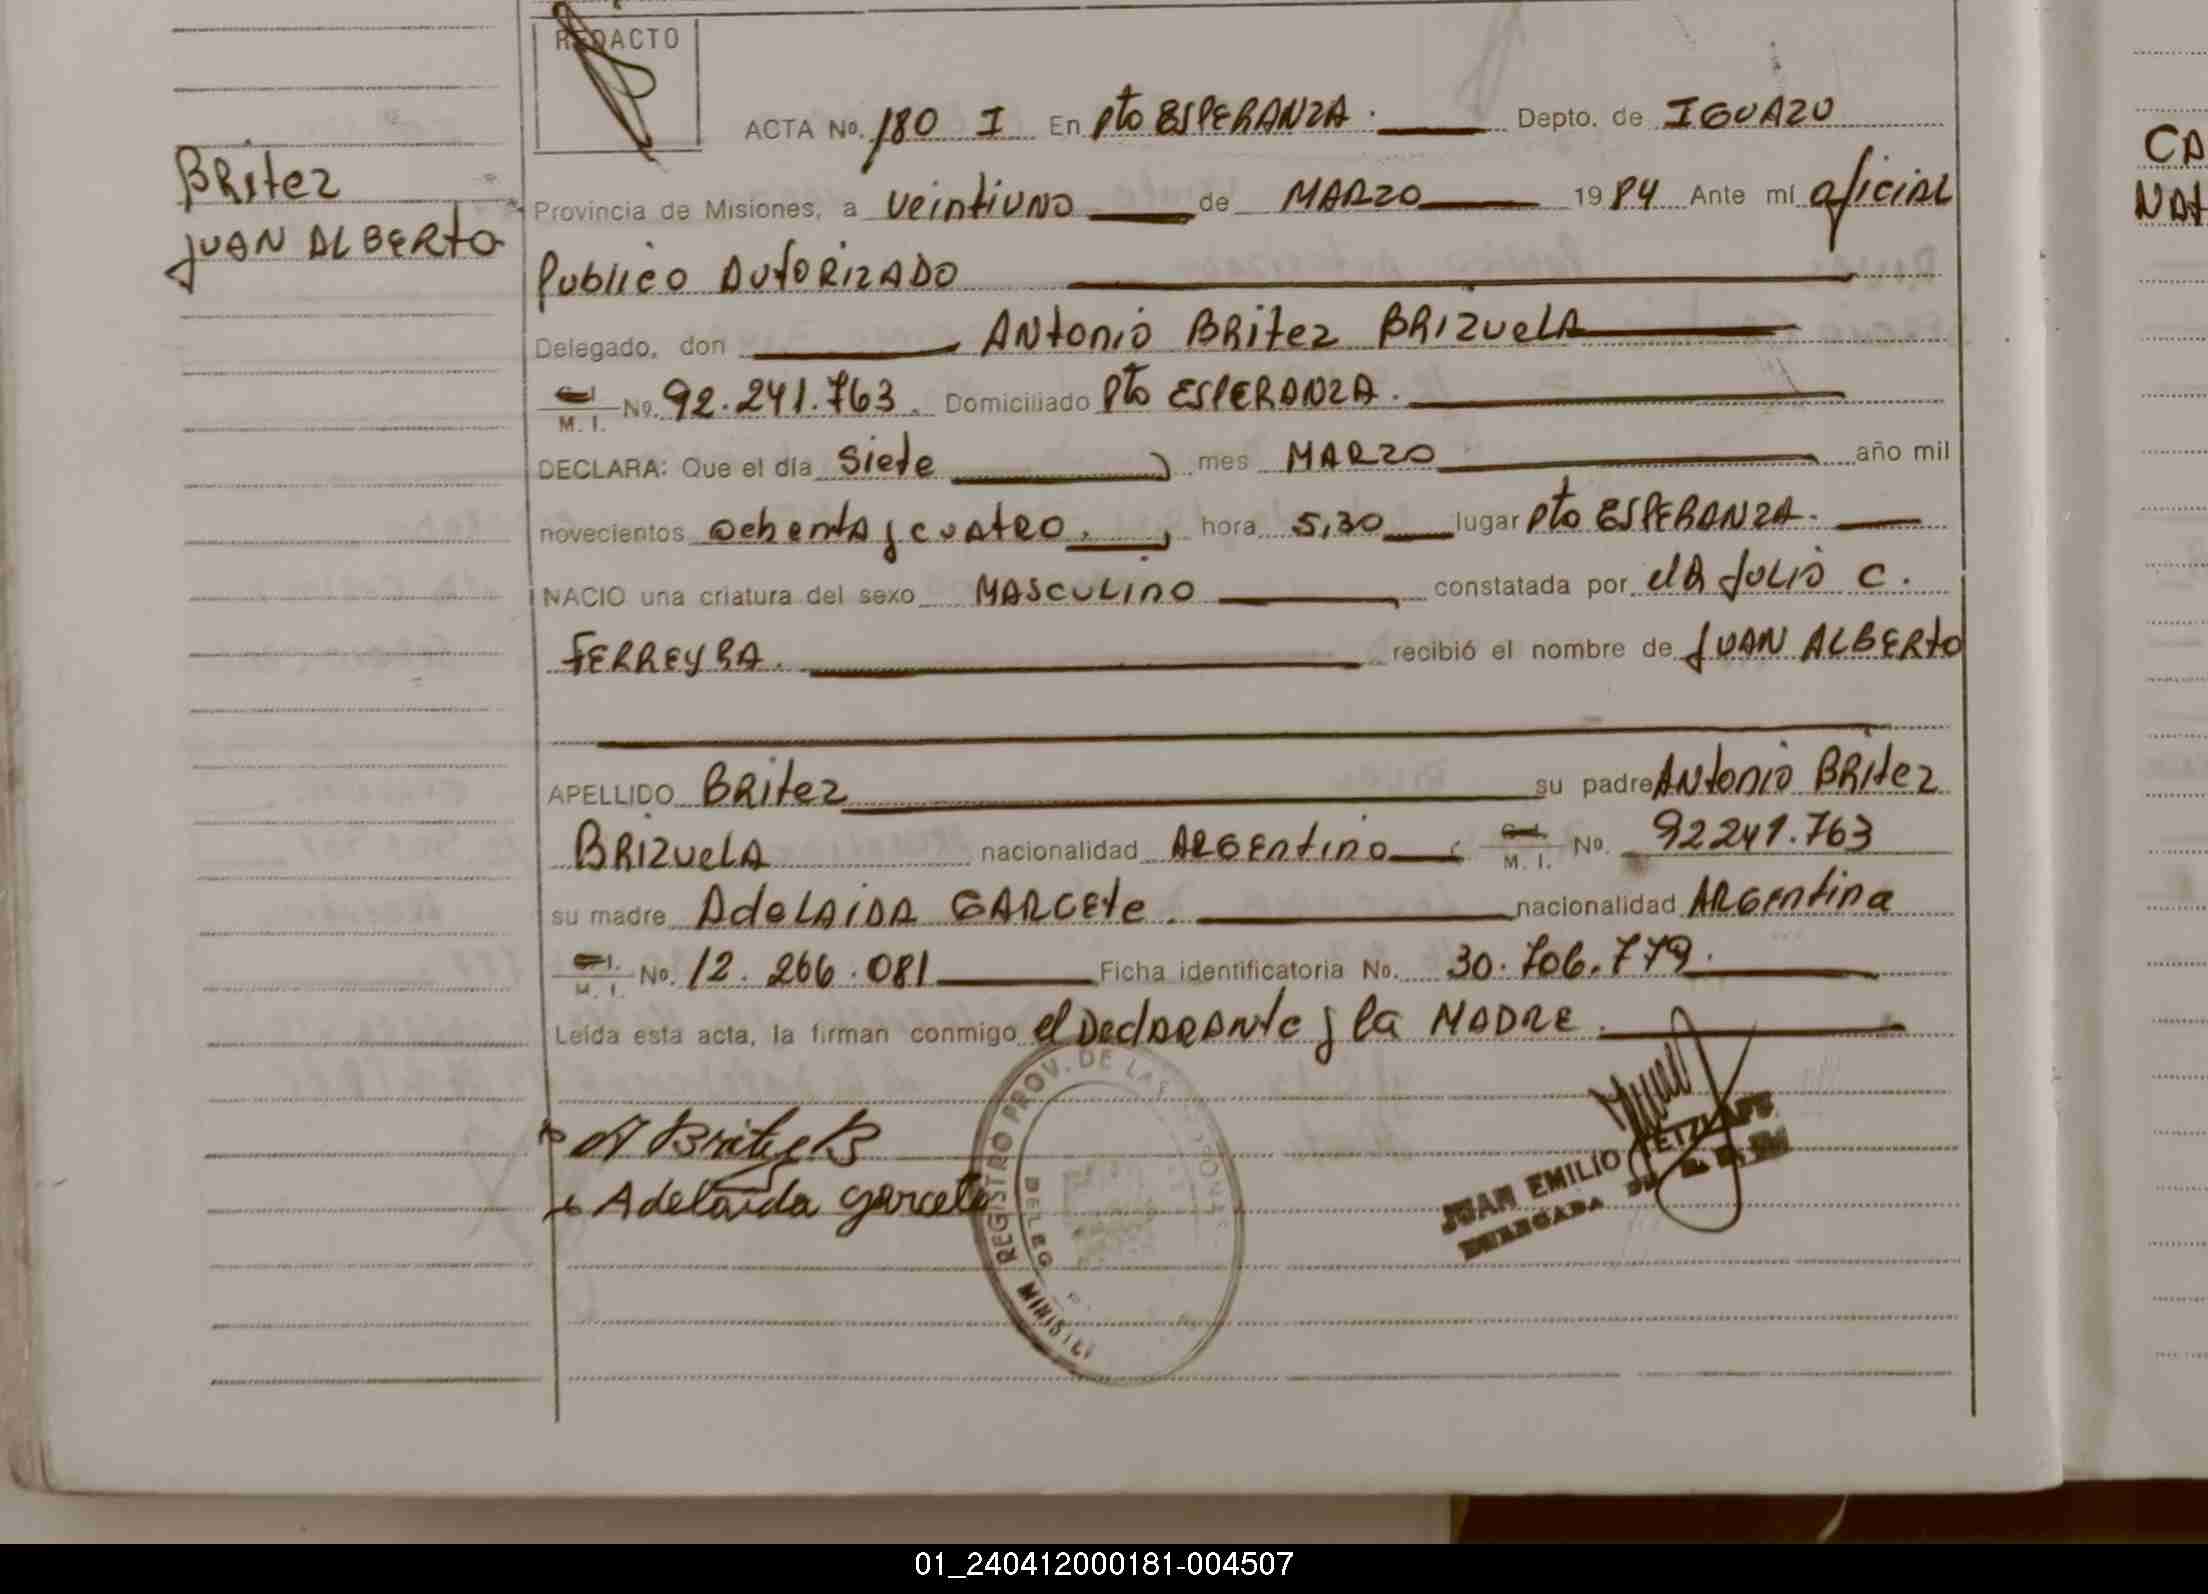 REDACTO
ACTA No. 180 I En Pto ESPERANZA. Depto. de IGUAZU
Britez
JUAN ALBERTO
Provincia de Misiones, a veintiuno de MARZO 1984 Ante mí oficial
Publico AUTORIZADO
Delegado, don Antonio Britez BRIZUELA
C.I. M. I. No. 92.241.763. Domiciliado Pto ESPERANZA.
DECLARA: Que el día siete mes MARZO año mil
novecientos ochenta y cuatro. hora 5,30 lugar Pto ESPERANZA.
NACIO una criatura del sexo MASCULINO constatada por JULIO C.
FERREYRA. recibió el nombre de JUAN ALBERTO
APELLIDO Britez su padre Antonio Britez
BRIZUELA nacionalidad ARGENTINO C.I. M. I. No. 92241.763
su madre AdelAIDA GARCETE. nacionalidad ARGENTINA
C.I. M. I. No. 12.266.081 Ficha identificatoria No. 30.706.779.
Leída esta acta, la firman conmigo el Declarante y la MADRE.
A Britez B
Adelaida garcete
REGISTRO PROV. DE LAS
DELEG
MINISTE
JUAN EMILIO
CA
NAT
01_240412000181-004507